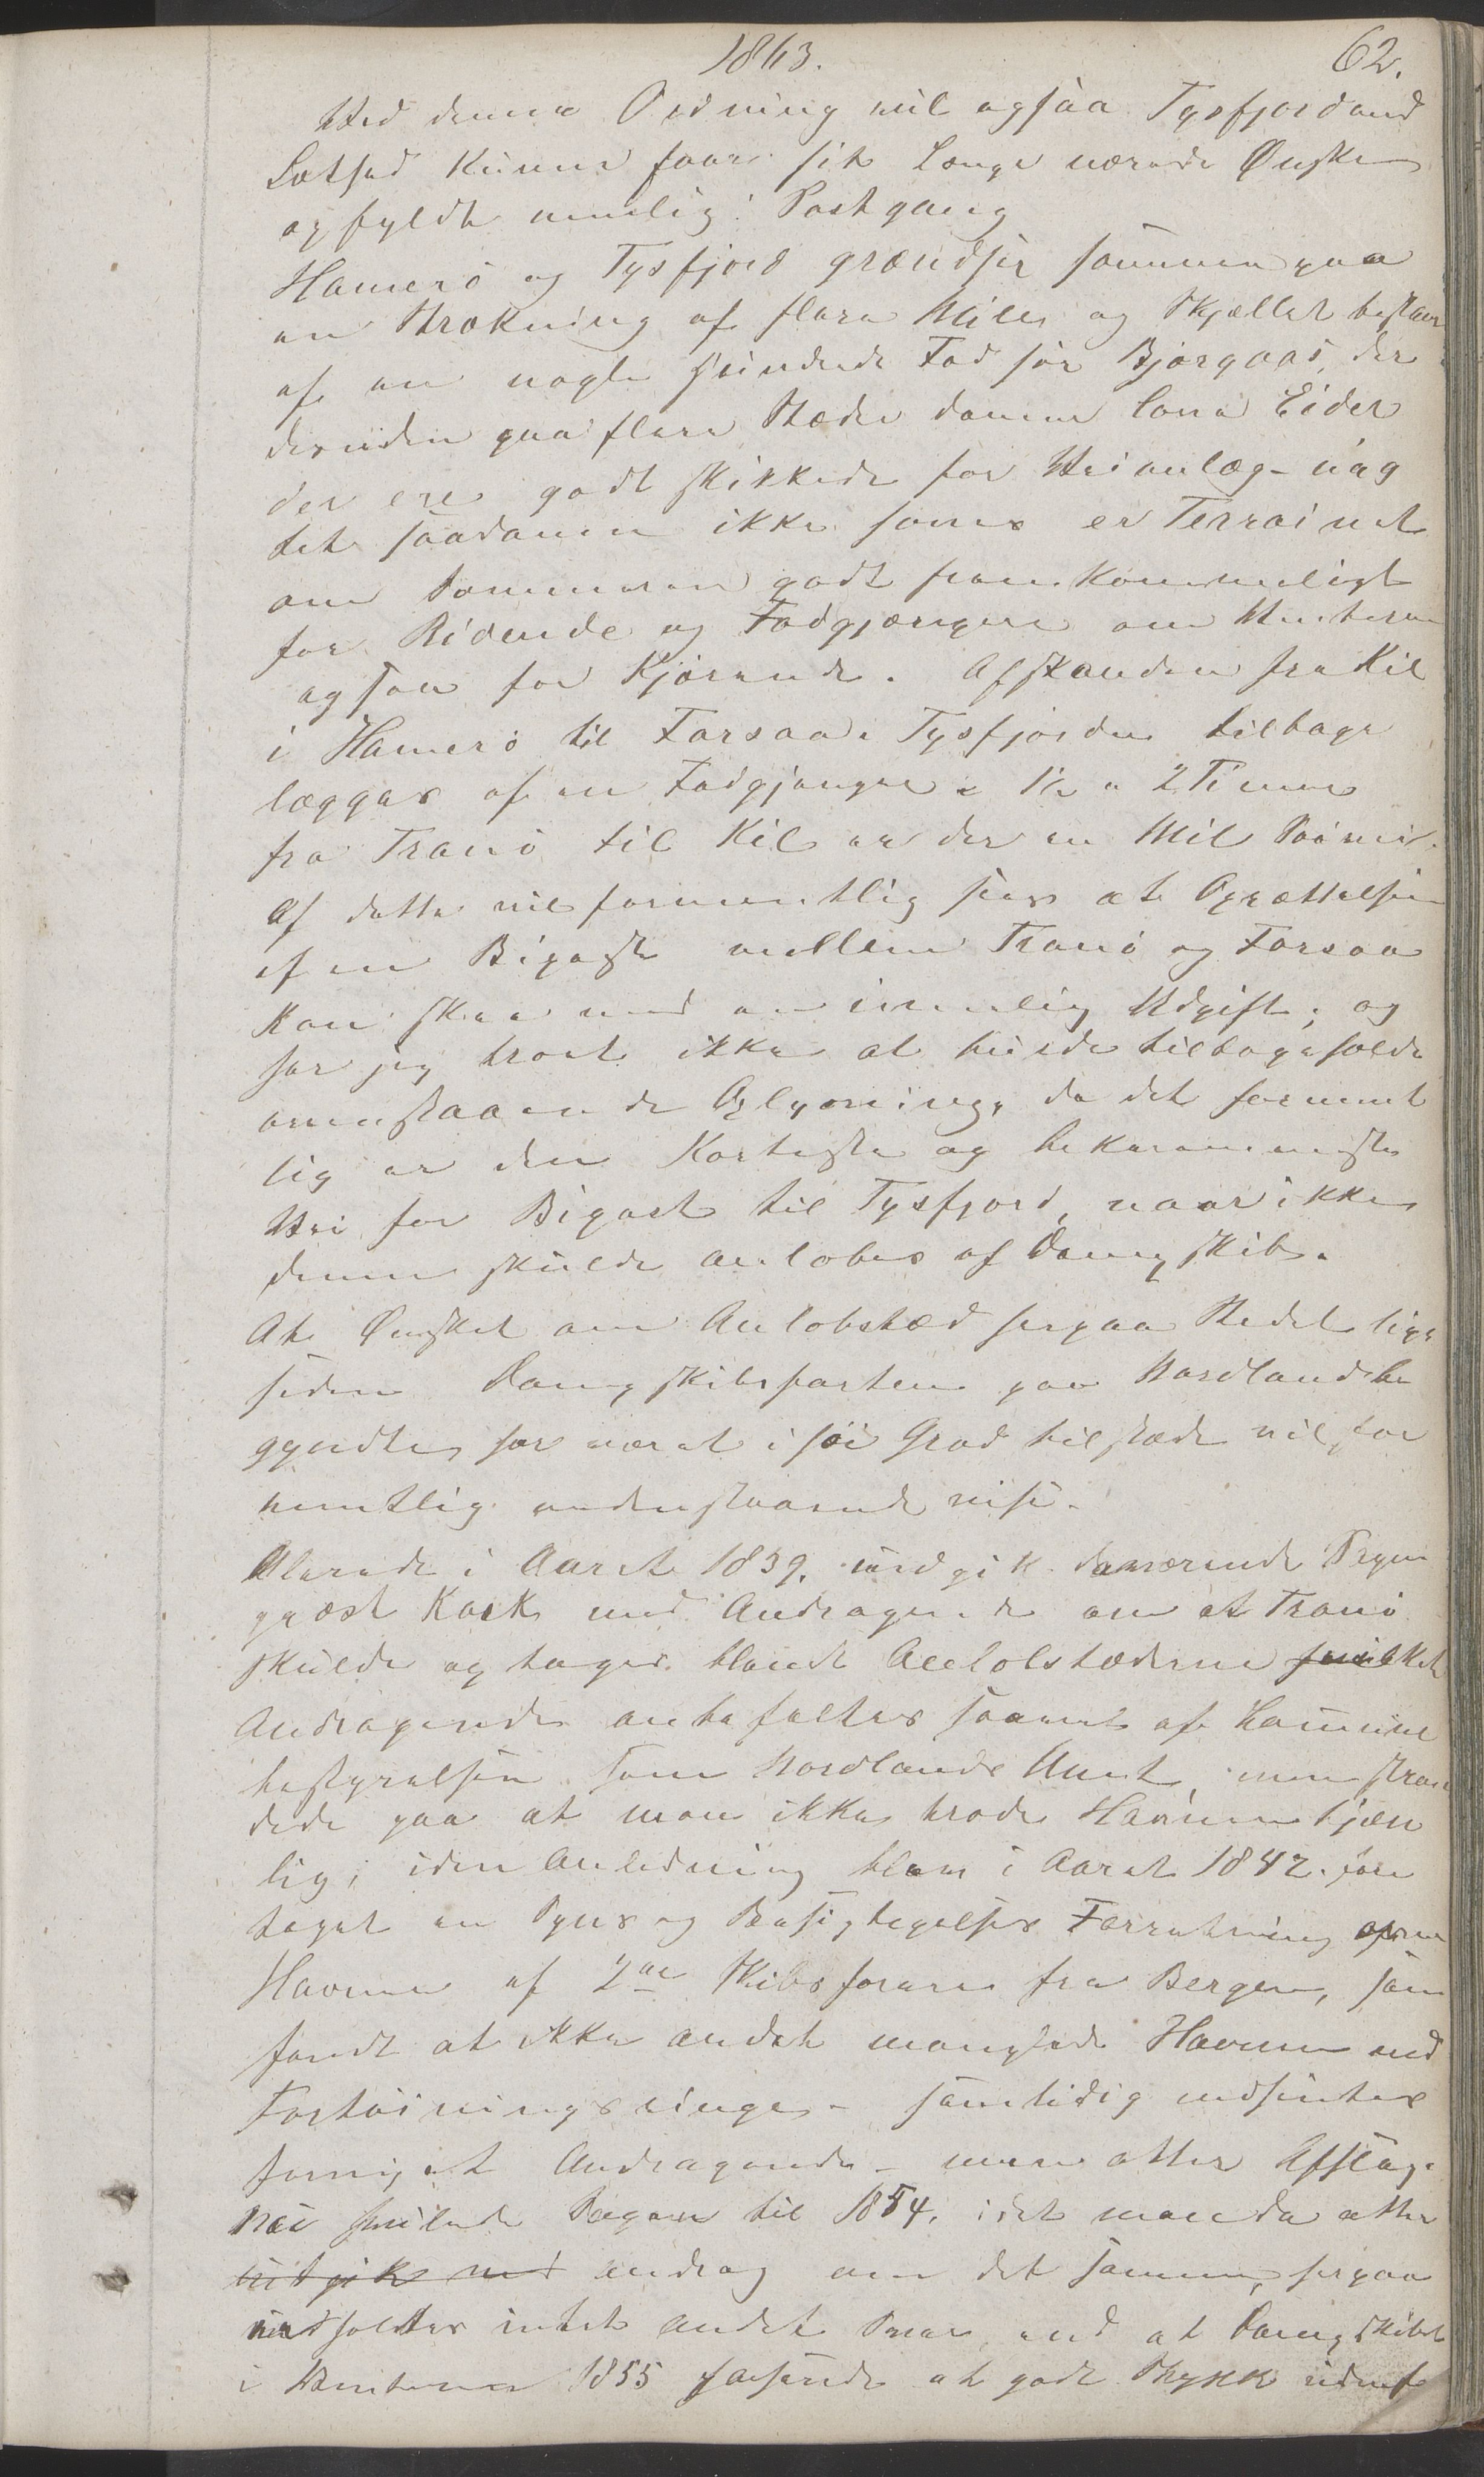 1863. 62.
Ved denne Ordning vil ogsaa Tysfjordens
Løtsed kunne faae sit længe nærede Ønske
opfyldt nemlig: Postgang
Hamerö og Tysfjord grændser sammen paa
en Strækning af flere Mile og Skjellet bestaaer
af en nogle hundrede Fod høi Bjergaas, der
desuden paa flere Stæder danner lave Eider
der ere godt skikkede for Veianlæg – uag
tet saadanne ikke haves er Terrainet
om Sommeren godt fremkommeligt
for Ridende og Fodgjængere om Vinteren
ogsaa for Kjørende. Afstanden fra Kil
i Hamerö til Forsaa i Tysfjorden tilbage
lægges af en Fodgjænger i 1½ a 2 Timer
fra Tranö til Kil er der en Miil Söevei.
Af dette vil formentlig sees at Oprettelsen
af en Bipost mellem Tranö og Forsaa
kan skee med en rimelig Udgift; og
har jeg troet ikke at burde tilbageholde
ovenstaaende Oplysning, da det forment
lig er den korteste og bekvemmeste
Vei for Bipost til Tysfjord, naar ikke
denne skulde anløbes af Dampskib.
At Ønsket om Anløbsted herpaa Stedet lige
siden Dampskibsfarten paa Nordland be
gyndte, har været i høi Grad tilstæde vil for
mentlig nedenstaaende vise.
Allerede i Aaret 1839. indgik daværende Sogne
præst Kock med Andragende om at Tranö
skulde optages blandt Anløbstæderne hvilket
Andragende anbefaltes saavel af Commune
bestyrelsen som Nordlands Amt, men stran
dede paa at man ikke troede Havnen tjen
lig; i den Anledning blev i Aaret 1842. fore
taget en Syns og Besigtigelses Forretning over
Havnen af 2de Skibsførere fra Bergen, som
fandt at ikke andet manglede Havnen end
Fortöiningsringe – samtidig indsendtes
fornyet Andragende – men atter Afslag.
Nu hvilede Sagen til 1854, idet man da atter
indgik med andrag om det samme, herpaa
indholdtes intet andet Svar, end at Dampskibet
i Vinteren 1855 forsøgte et godt Stykke udenf